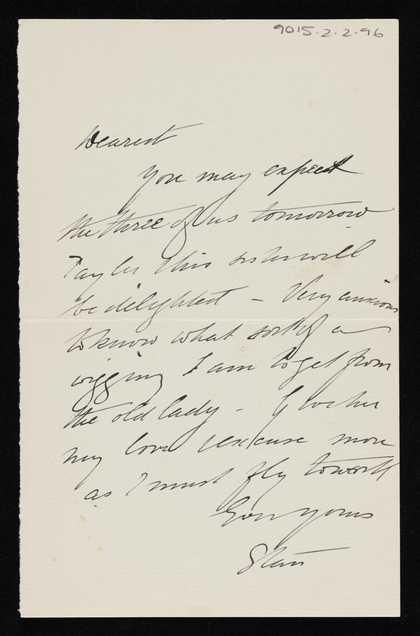 9015.2.2.96
Dearest
You may expect
the three of us tomorrow
Tayler his sister will
be delighted - Very anxious
to know what sort of a
wigging I am to get from
the old lady - Give her
my love & excuse more
as I must fly to work
Ever yours